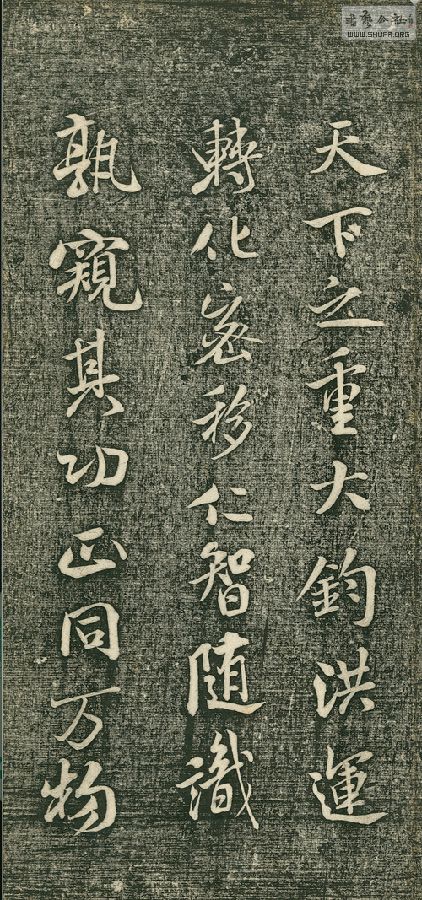 天下之重大鈞洪運
轉化密移仁智随識
孰窺其功正同万物
WWW.SHUFA.ORG